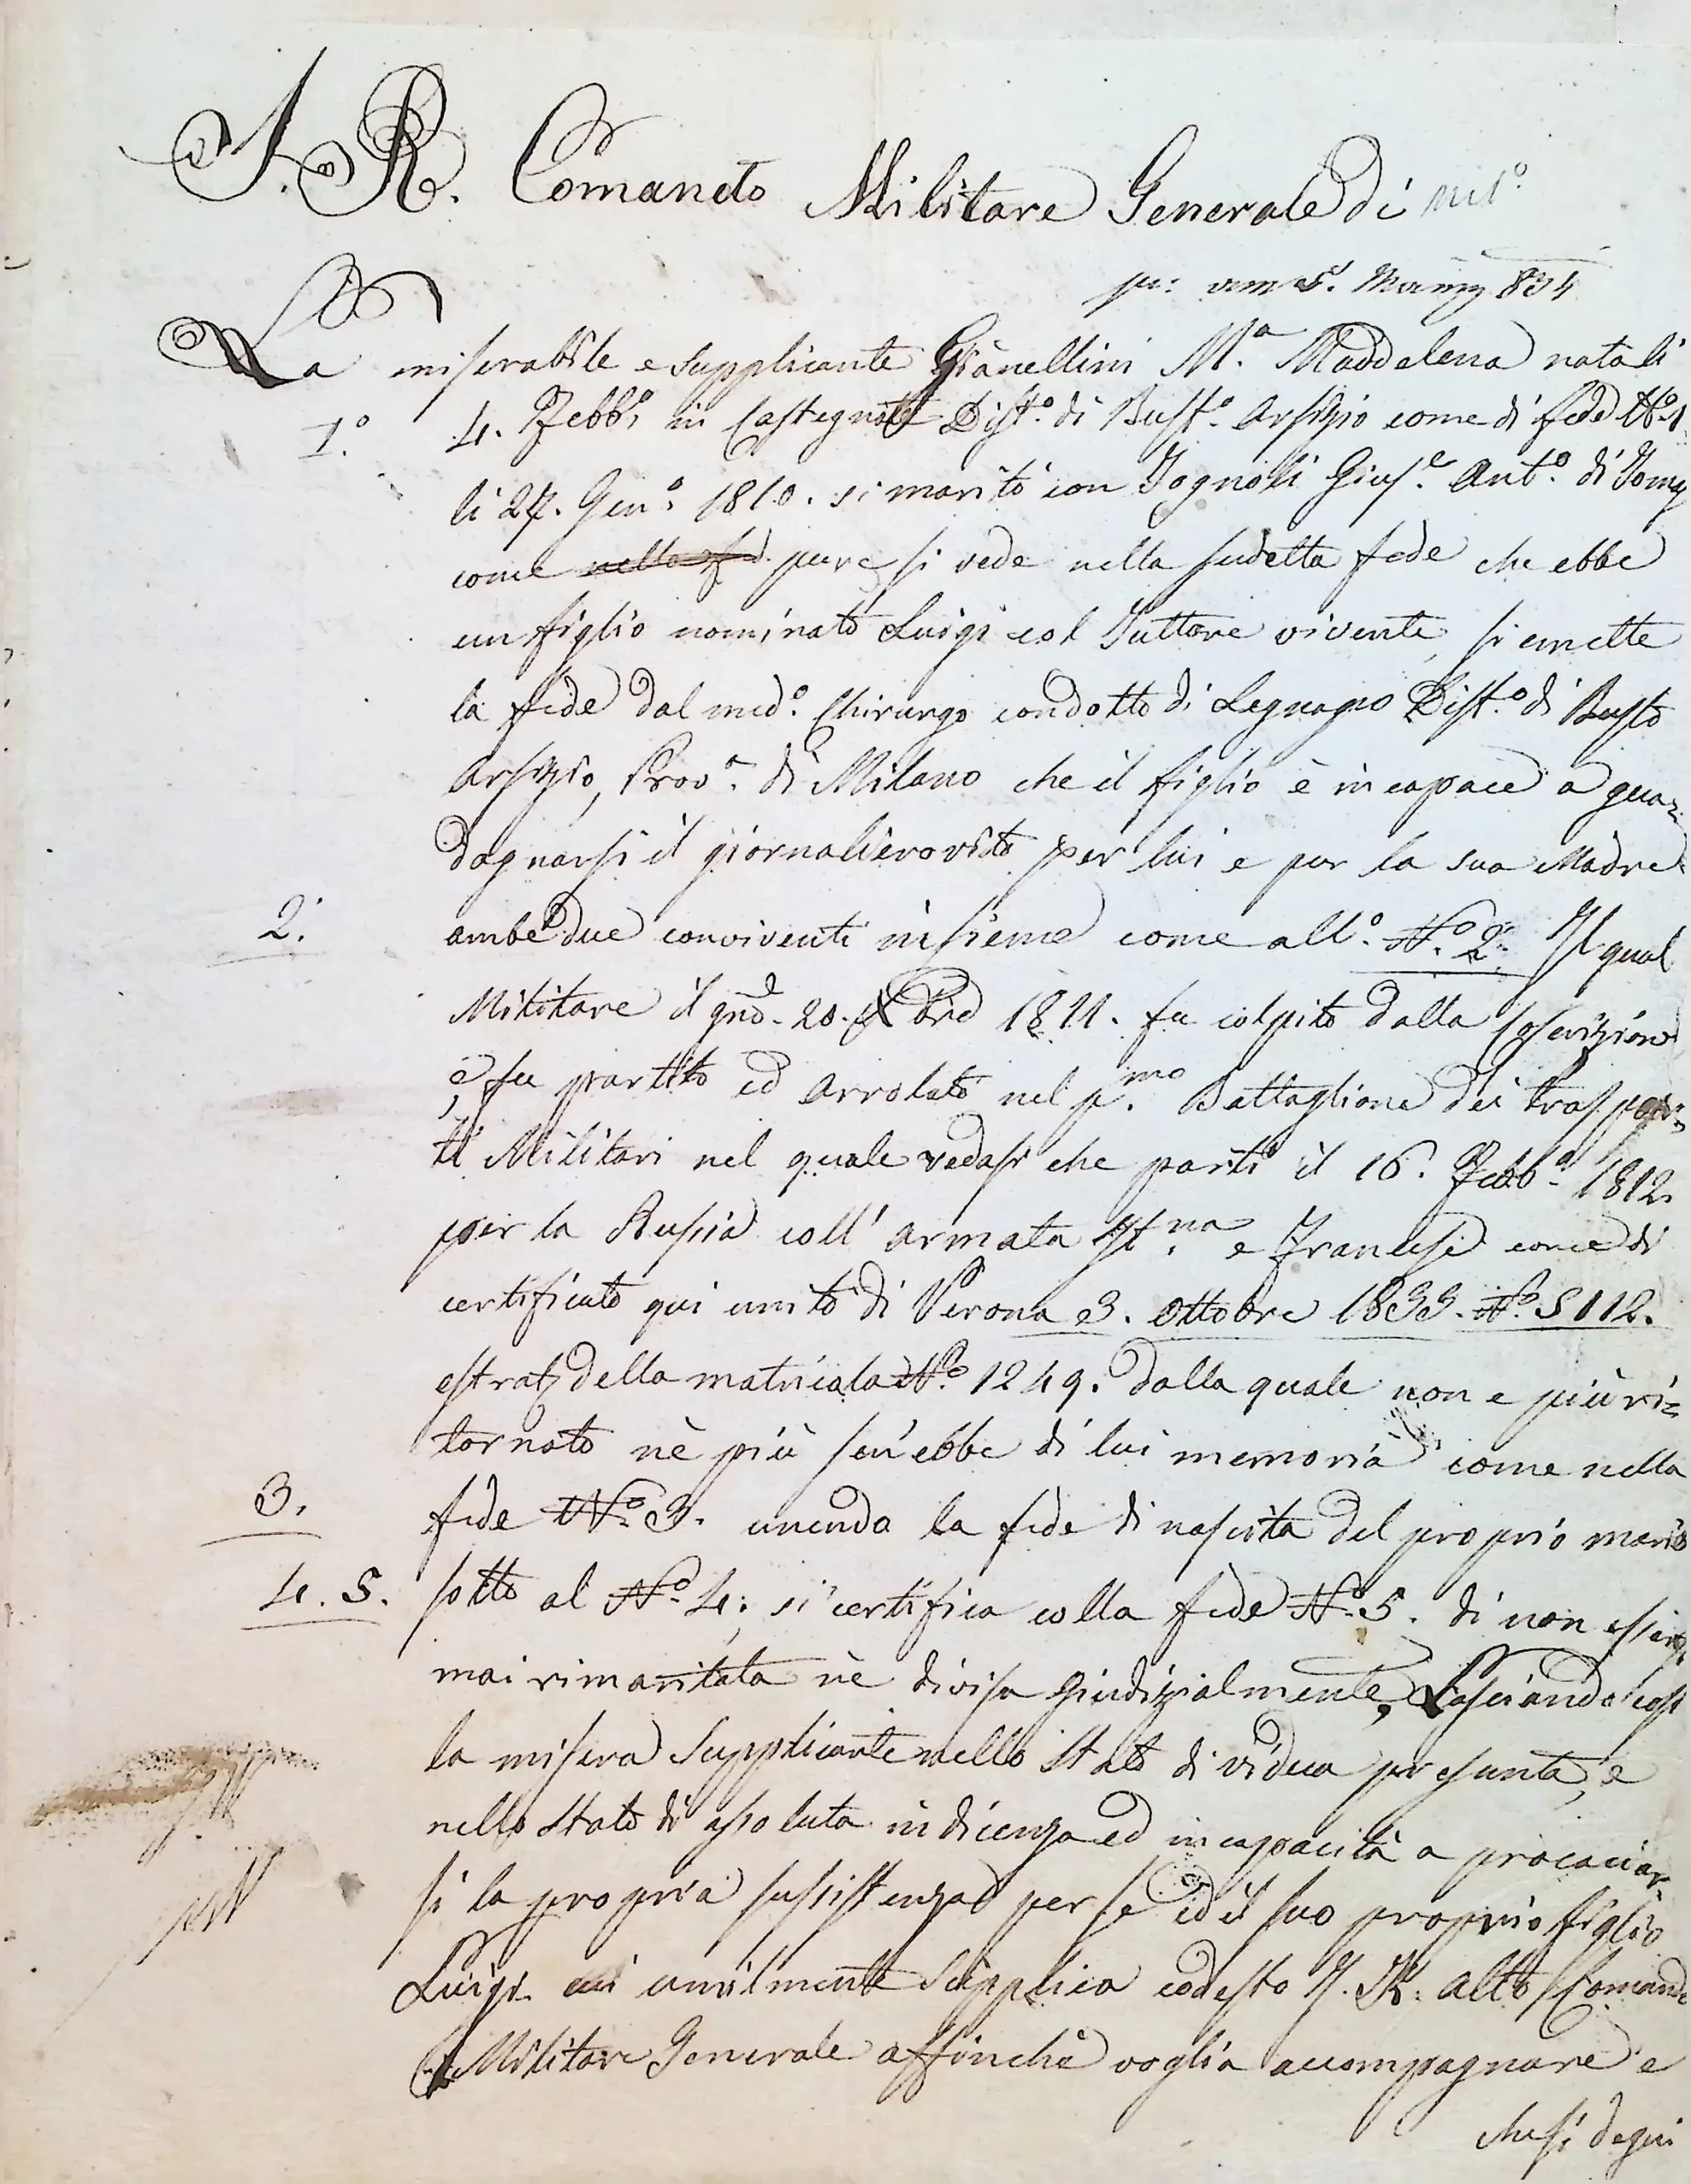 I. R. Comando Militare Generale di Mil.º
pr: am 5. März 834
La miserabile e supplicante Gianellini M.ª Maddalena natali
1.º
4. Febb.º in Castegnate Dist.º di Bust.º Arsizio come di fede Nº. 1
li 27. Gen.º 1810. si maritò con Tognoli Gius.e Ant.º di
come nella fed. pure si vede nella sudetta fede che ebbe
un figlio nominato Luigi col Tuttore vivente, si emette
la fede dal med.º Chirurgo condotto di Legnano Dist.º di Busto
Arsizio, Prov.ª di Milano che il figlio è incapace a gua=
dagnarsi il giornaliero vitto per lui e per la sua Madre
2.º
ambe due conviventi insieme come all.º Nº. 2º Il qual
Militare il gno. 20. Xbre 1811. fu colpito dalla Coscrizione
e, fu partito ed arrolato nel p.mo Battaglione dei traspor=
ti Militari nel quale vedasi che partì il 16. Febb.º 1812.
per la Russia coll' armata It.na e Francese come di
certificato qui unito di Verona 3. Ottobre 1833. Nº. 5112.
estrat. della matricola Nº. 1249. dalla quale non e più ri=
tornato nè più sen'ebbe di lui memoria come nella
3.
fede Nº. 3. unendo la fede di nascita del proprio marito
4. 5.
sotto al Nº. 4; si certifica colla fede Nº. 5. di non essersi
mai rimaritata nè divisa giudizialmente, Lasciando così
la misera supplicante nello Stato di vidua presunta, e
nello Stato di assoluta indicenza ed incapacità a procaciar=
si la propria sussistenza per se ed il suo proprio figlio
Luigi umilmente Supplica codesto I. R. alto Comando
Militare Generale affinchè voglia accompagnare e
che si degni